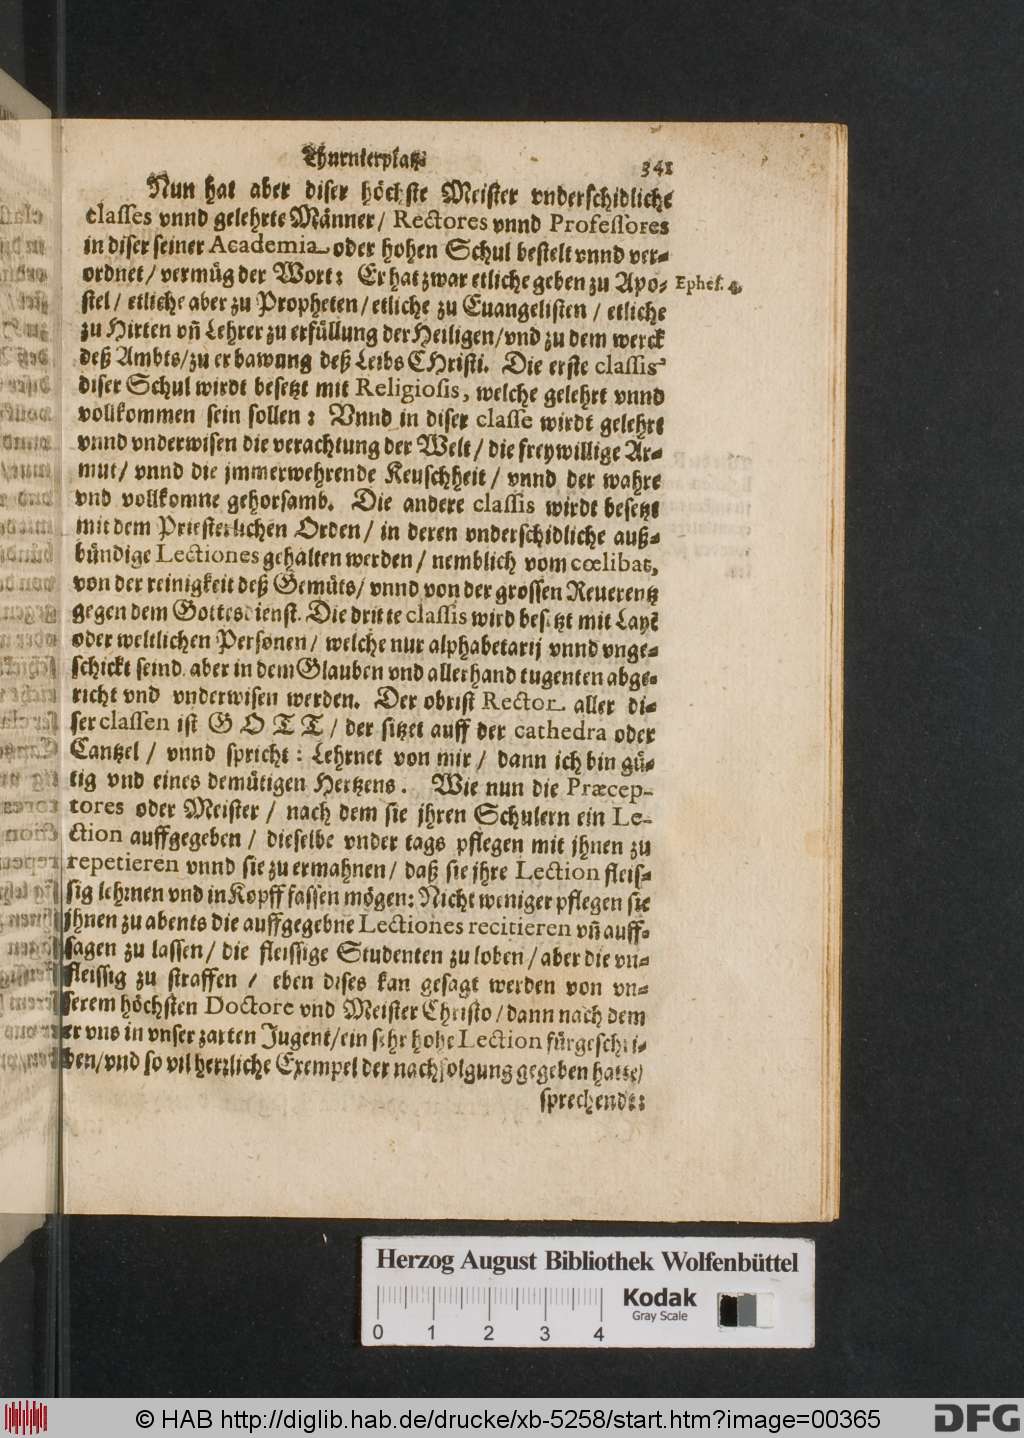 Thurnierplatz. 341
Nun hat aber diser höchste Meister vnderschidliche
classes vnnd gelehrte Männer / Rectores vnnd Professores
in diser seiner Academia oder hohen Schul bestelt vnnd ver-
ordnet / vermüg der Wort: Er hat zwar etliche geben zu Apo-
Ephes. 4.
stel / etliche aber zu Propheten / etliche zu Euangelisten / etliche
zu Hirten vñ Lehrer zu erfüllung der Heiligen / vnd zu dem werck
deß Ambts / zu erbawung deß Leibs CHristi. Die erste classis
diser Schul wirdt besetzt mit Religiosis, welche gelehrt vnnd
vollkommen sein sollen: Vnnd in diser classe wirdt gelehrt
vnnd vnderwisen die verachtung der Welt / die freywillige Ar-
mut / vnnd die jmmerwehrende Keuschheit / vnnd der wahre
vnd vollkomne gehorsamb. Die andere classis wirdt besetzt
mit dem Priesterlichen Orden / in deren vnderschidliche auß-
bündige Lectiones gehalten werden / nemblich vom cœlibat,
von der reinigkeit deß Gemüts / vnnd von der grossen Reuerentz
gegen dem Gottesdienst. Die dritte classis wird besetzt mit Layẽ
oder weltlichen Personen / welche nur alphabetarij vnnd vnge-
schickt seind, aber in dem Glauben vnd allerhand tugenten abge-
richt vnd vnderwisen werden. Der obrist Rector aller di-
ser classen ist GOTT / der sitzet auff der cathedra oder
Cantzel / vnnd spricht: Lehrnet von mir / dann ich bin gü-
tig vnd eines demütigen Hertzens. Wie nun die Præcep-
tores oder Meister / nach dem sie jhren Schulern ein Le-
ction auffgegeben / dieselbe vnder tags pflegen mit jhnen zu
repetieren vnnd sie zu ermahnen / daß sie jhre Lection fleis-
sig lehrnen vnd in Kopff fassen mögen: Nicht weniger pflegen sie
jhnen zu abents die auffgegebne Lectiones recitieren vñ auff-
sagen zu lassen / die fleissige Studenten zu loben / aber die vn-
fleissig zu straffen / eben dises kan gesagt werden von vn-
serem höchsten Doctore vnd Meister Christo / dann nach dem
er vns in vnser zarten Jugent / ein sehr hohe Lection fürgeschri-
ben / vnd so vil herrliche Exempel der nachfolgung gegeben hatte /
sprechendt:
Herzog August Bibliothek Wolfenbüttel
Kodak
Gray Scale
0 1 2 3 4
© HAB http://diglib.hab.de/drucke/xb-5258/start.htm?image=00365
DFG